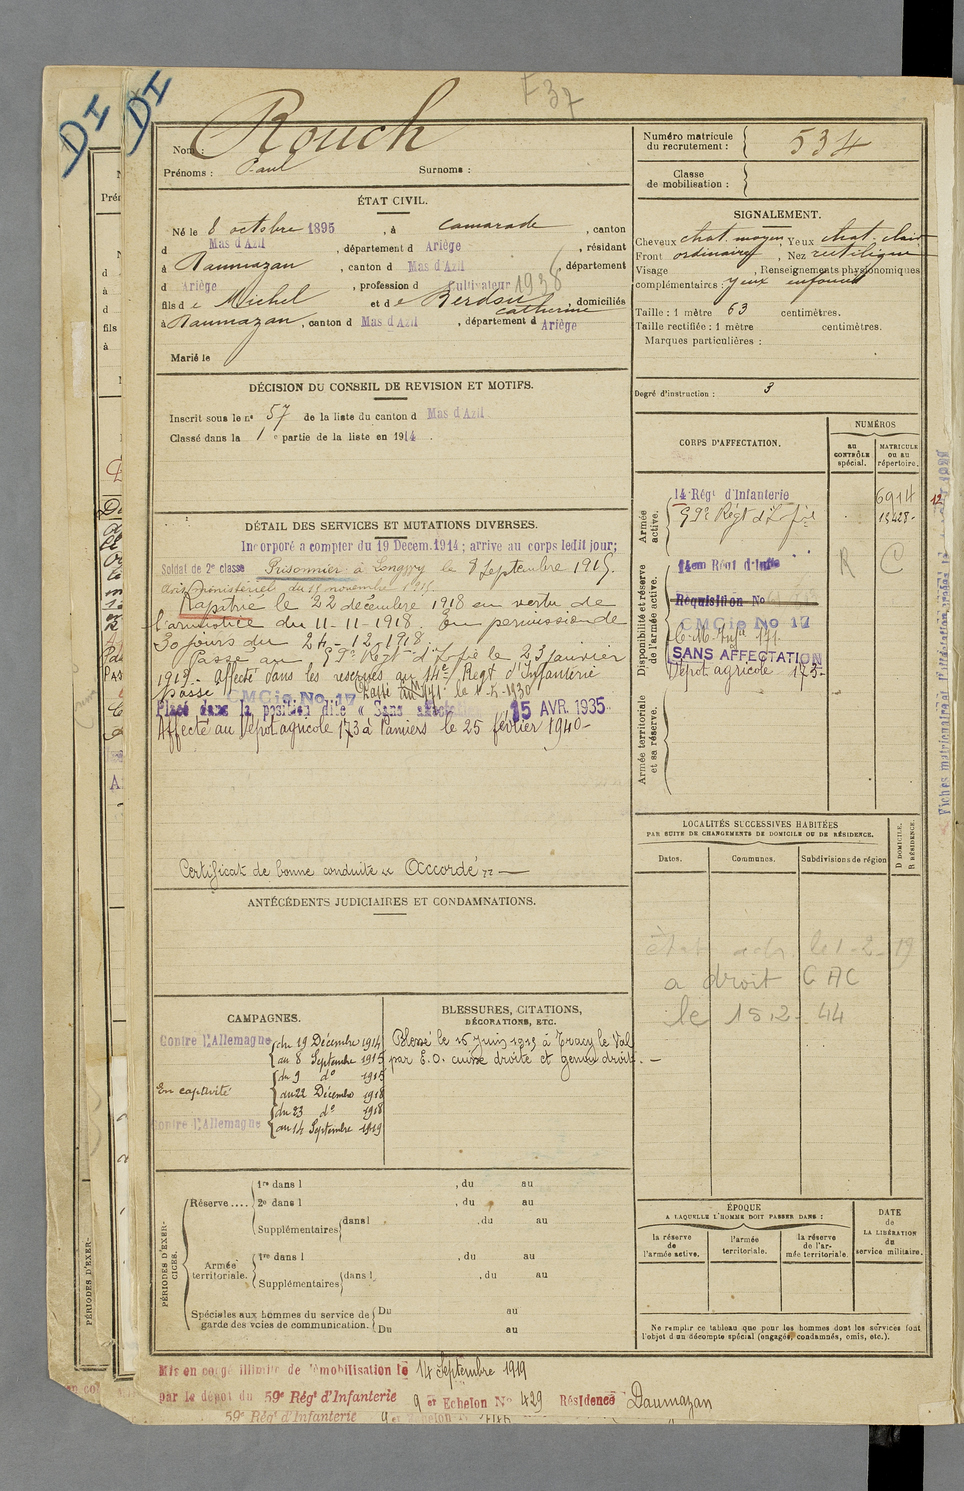 F37
DI
DI
Nom : Rouch
Prénoms : Paul Surnoms :
ÉTAT CIVIL.
Né le 8 octobre 1895, à Camarade, canton
d Mas d'Azil, département d Ariège, résidant
à Daumazan, canton d Mas d'Azil, département
d Ariège, profession d Cultivateur 1938
fils de Michel et de Berdou Catherine, domiciliés
à Daumazan, canton d Mas d'Azil, département d Ariège
Marié le
DÉCISION DU CONSEIL DE REVISION ET MOTIFS.
Inscrit sous le n° 57 de la liste du canton d Mas d'Azil
Classé dans la 1e partie de la liste en 1914.
DÉTAIL DES SERVICES ET MUTATIONS DIVERSES.
Incorporé a compter du 19 Decem. 1914; arrive au corps ledit jour;
Soldat de 2e classe Prisonnier à Longwy le 8 Septembre 1915.
Avis ministériel du 11 novembre 1915
Rapatrié le 22 décembre 1918 en vertu de
l'armistice du 11-11-1918. En permission de
30 jours du 24-12-1918.
Passé au 59e Régt d'Infie le 23 janvier
1919. Affecté dans les reserves au 14e Regt d'Infanterie
Passé CMGie No 17 Passé au 141e le 1-5-1930
Placé dans la position dite « Sans affectation 15 AVR. 1935
Affecté au Dépot agricole 173 à Pamiers le 25 février 1940-
Certificat de bonne conduite « Accordé » —
ANTÉCÉDENTS JUDICIAIRES ET CONDAMNATIONS.
CAMPAGNES.
Contre l'Allemagne du 19 Décembre 1914
au 8 Septembre 1915
En captivité du 9 do 1915
au 22 Décembre 1918
du 23 do 1918
Contre l'Allemagne au 14 Septembre 1919
BLESSURES, CITATIONS,
DÉCORATIONS, ETC.
Blessé le 16 Juin 1915 à Tracy le Val
par E.O. cuisse droite et genou droit. —
PÉRIODES D'EXERCICES.
Réserve.... 1re dans l , du au
2e dans l , du au
Supplémentaires dans l , du au
Armée territoriale. 1re dans l , du au
Supplémentaires dans l , du au
Spéciales aux hommes du service de garde des voies de communication. Du au
Du au
Numéro matricule
du recrutement : 534
Classe
de mobilisation :
SIGNALEMENT.
Cheveux chat. moyen Yeux chat. clair
Front ordinaire, Nez rectiligne
Visage , Renseignements physionomiques
complémentaires : Yeux enfoncés
Taille : 1 mètre 63 centimètres.
Taille rectifiée : 1 mètre centimètres.
Marques particulières :
Degré d'instruction : 3
CORPS D'AFFECTATION.
NUMÉROS
au CONTRÔLE spécial.
MATRICULE ou au répertoire.
Armée active.
14 Régt d'Infanterie 6914 12
59e Régt d'Infie 15428
Disponibilité et réserve de l'armée active.
14em Régt d'Infie R C
Réquisition No
CMGie No 17
SANS AFFECTATION
Dépot agricole 173-
Armée territoriale et sa réserve.
LOCALITÉS SUCCESSIVES HABITÉES
PAR SUITE DE CHANGEMENTS DE DOMICILE OU DE RÉSIDENCE.
Dates. Communes. Subdivisions de région
D DOMICILE.
R RÉSIDENCE.
le 1-2-19
a droit CAC
le 15.2-44
ÉPOQUE
A LAQUELLE L'HOMME DOIT PASSER DANS :
la réserve de l'armée active.
l'armée territoriale.
la réserve de l'armée territoriale.
DATE
de
LA LIBÉRATION
du
service militaire.
Ne remplir ce tableau que pour les hommes dont les services font
l'objet d'un décompte spécial (engagés, condamnés, omis, etc.).
Mis en congé illimité de démobilisation le 14 Septembre 1919
par le dépôt du 59e Régt d'Infanterie 9 et Echelon No 429 Résidence Daumazan
59e Régt d'Infanterie 9 et Echelon
PÉRIODES D'EXER-